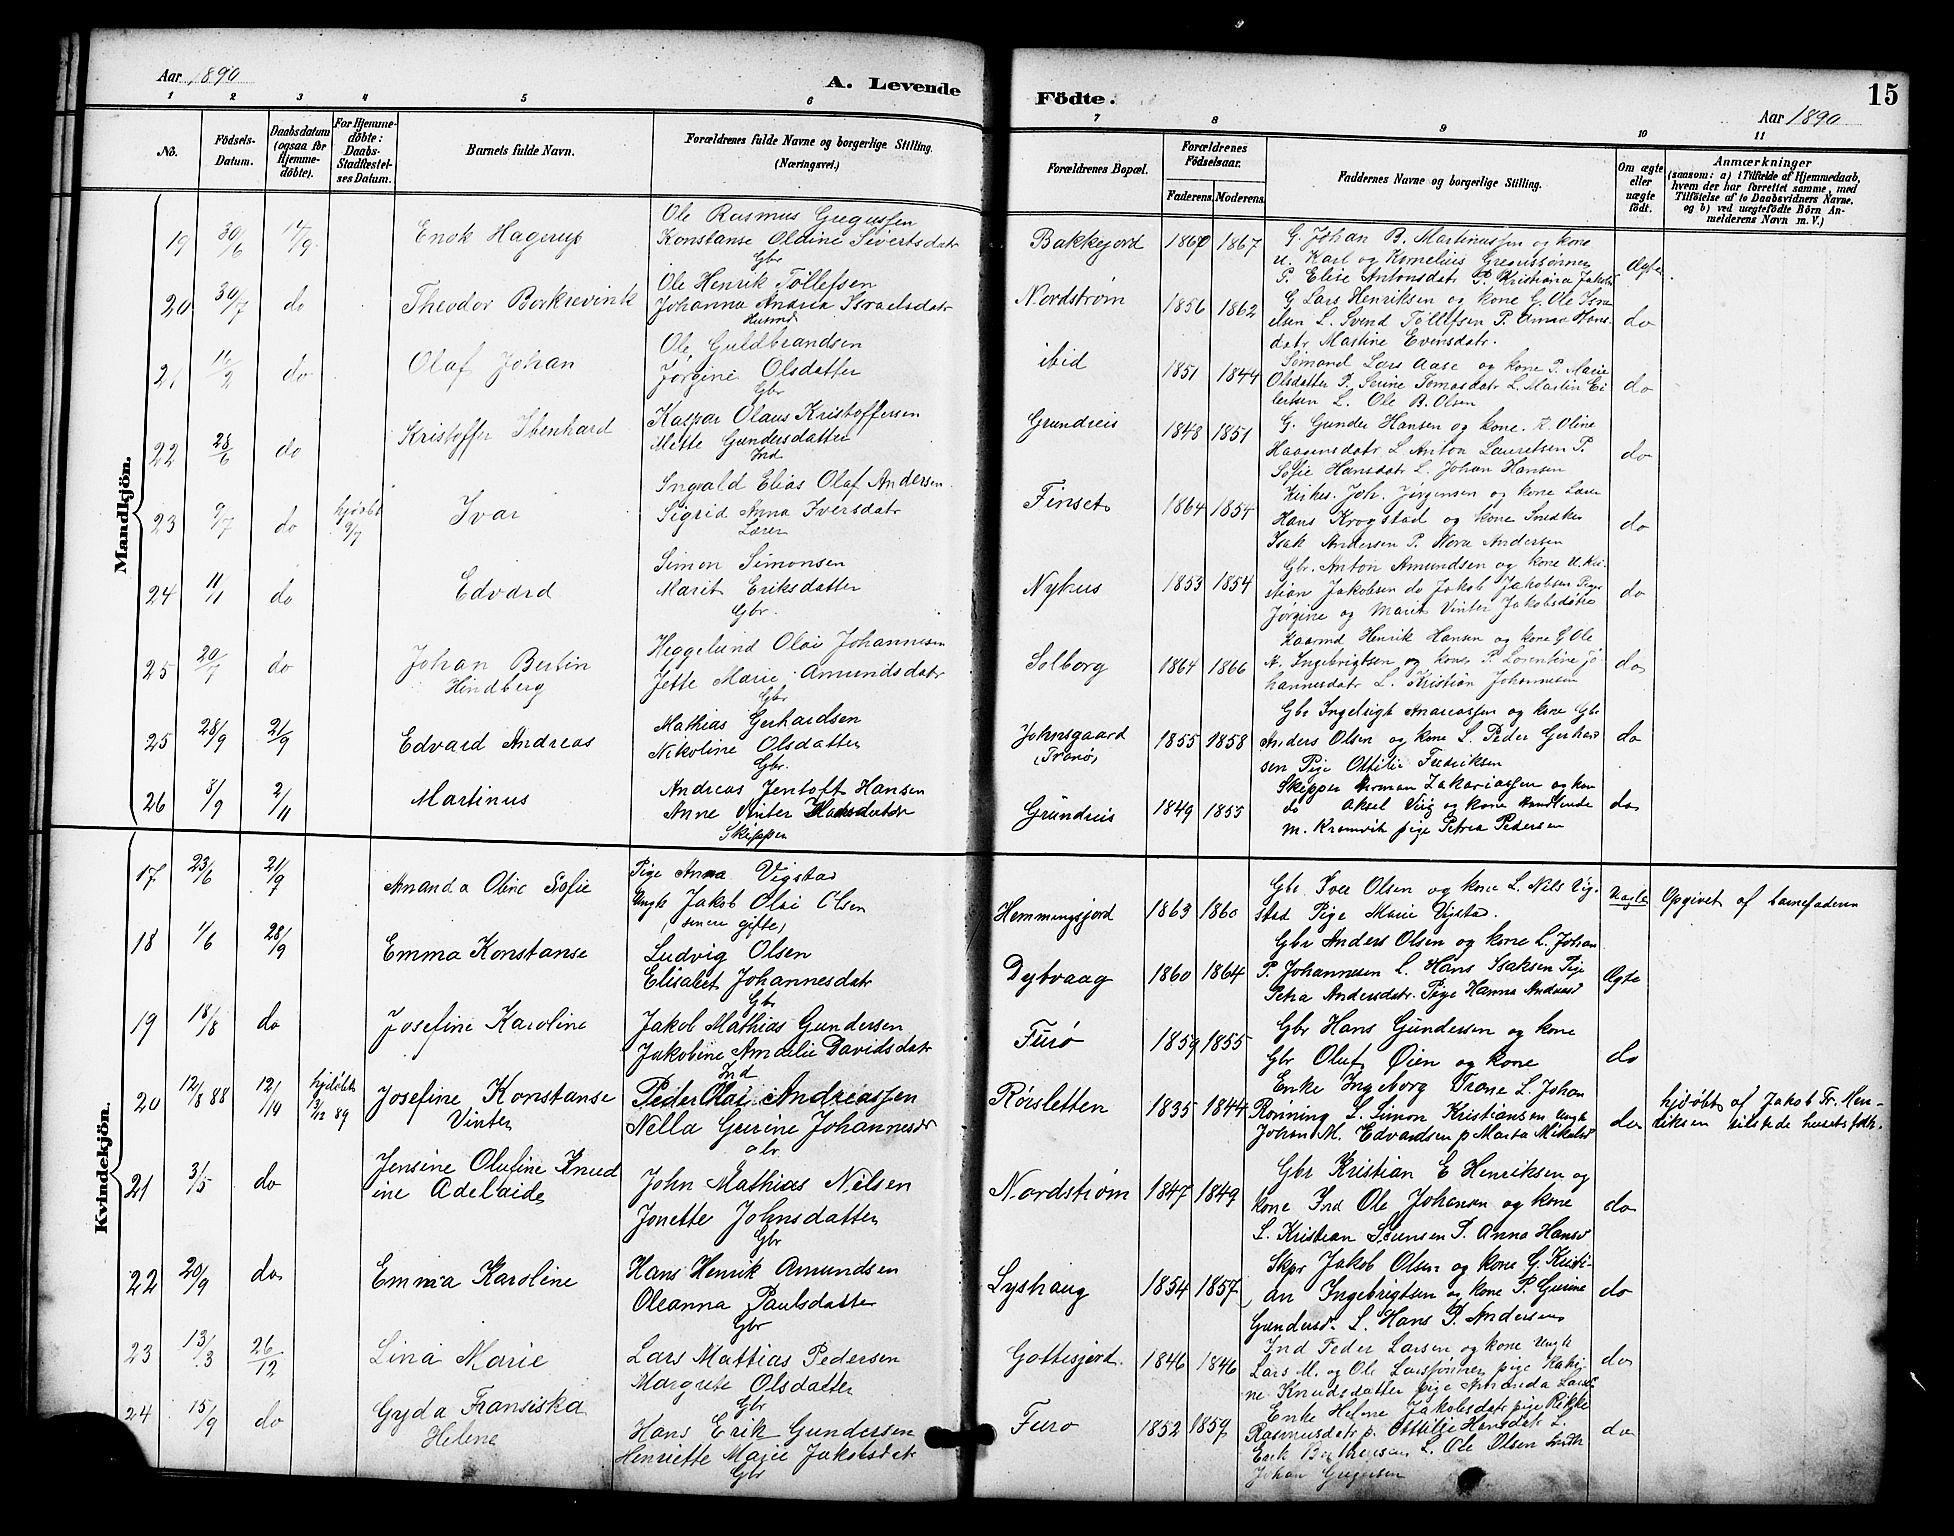 Aar 1890
A. Levende
Födte.
15
Aar 1890
1 2 3 4 5 6 7 8 9 10 11
No.
Födsels-Datum.
Daabsdatum (ogsaa for Hjemme-döbte).
For Hjemme-döbte: Daabs-Stadfæstel-ses Datum.
Barnets fulde Navn.
Forældrenes fulde Navne og borgerlige Stilling.
(Næringsvei.)
Forældrenes Bopæl.
Forældrenes Födselsaar.
Faderens. Moderens.
Faddernes Navne og borgerlige Stilling.
Om ægte eller uægte födt.
Anmærkninger
(saasom: a) i Tilfælde af Hjemmedaab,
hvem der har forrettet samme, med
Tilföielse af to Daabsvidners Navne,
og b) ved uægtefödte Börn An-
melderens Navn m. V.)
Mandkjön.
19 30/6 14/9 Enok Hagerup
Ole Rasmus Gregussen
Konstanse Oldine Sivertsdatr
Gbr
Bakkejord 1867
G. Johan B. Martinussen og kone
u. Karl og Kornelius Gregussønner
P. Elise Antonsdatr P. Kristianna Jakobs
Ægte
20 30/7 do Theodor Borkrevink
Ole Henrik Tøllefsen
Johanna Andria Israelsdatr
Husmd
Nordstrøm 1856 1862
G Lars Henriksen og kone G. Ole Isra
elsen L. Svend Tøllefsen P. Anna Hans
datr Martine Evensdatr.
do
21 11/2 do Olaf Johan
Ole Guldbrandsen
Jørgine Olsdatter
Gbr
ibid 1851 1844
Sømand Lars Aase og kone P. Marie
Olsdatter P. Serine Tomasdatr L. Martin Ei
lertsen L. Ole B. Olsen
do
22 28/6 do Kristoffer Ibenhard
Kaspar Olaus Kristoffersen
Mette Gundersdatter
Ind
Grundreis 1848 1851
G. Gunder Hansen og kone. K. Oline
Haagensdatr L Anton Lauritsen P.
Sofie Hansdatr L. Johan Hansen
do
23 9/7 do hjdøbt 9/7 Ivar
Ingvald Elias Olaf Andersen
Sigrid Anna Iversdatr
Lærer
Finset 1864 1854
Kirkes. Joh. Jørgensen og kone Lærer
Hans Krogstad og kone Snedker
Isak Andersen P. Nora Andersen
do
24 11/1 do Edvard
Simon Simonsen
Marit Eriksdatter
Gbr.
Nyhus 1853 1854
Gbr. Anton Amundsen og kone U. Kri
stian Jakobsen do Jakob Jakobsen Pige
Jørgine og Marit Vinter Jakobsdøtre
do
25 20/7 do Johan Bertin
Hindberg
Heggelund Olai Johannesen
Jette Marie Amundsdatr
Gbr
Solborg 1864 1866
Kaarmd Henrik Hansen og kone G Ole
N. Ingebrigtsen og kone P. Lorentine Jo
hannesdatr L. Kristian Johannesen
do
25 28/9 21/9 Edvard Andreas
Mathias Gerhardsen
Nikoline Olsdatter
Gbr.
Johnsgaard
(Tranø) 1855 1858
Gbr Ingebrigt Andreassen og kone Gbr
Anders Olsen og kone L. Peder Gerhard
sen Pige Ottilie Fredriksen
do
26 3/9 2/11 Martinus
Andreas Jentoft Hansen
Anne Vinter Hansdatter
Skipper
Grundreis 1849 1855
Skipper Herman Zakariassen og kone
do Aksel Virg og kone Handlende
M. Kramvik pige Petra Pedersen
do
Kvindekjön.
17 23/6 21/9 Amanda Oline Sofie
Pige Anna Vigstad
Ungk Jakob Olai Olsen
(senere gifte)
Hemmingsjord 1863 1860
Gbr Iver Olsen og kone L. Nils Vig-
stad Pige Marie Vigstad.
Uægte Opgivet af barnefaderen
18 1/6 28/9 Emma Konstanse
Ludvig Olsen
Elisabet Johannesdatr
Gbr
Dybvaag 1860 1864
Gbr Anders Olsen og kone L. Johan
P. Johannesen L. Hans Isaksen Pige
Petra Andersdatr. Pige Hanna Andersd
Ægte
19 18/8 do Josefine Karoline
Jakob Mathias Gundersen
Jakobine Amalie Davidsdatr
Ind
Furø 1859 1855
Gbr Hans Gundersen og kone
Gbr Oluf Øien og kone
do
20 12/8 88 12/10 hjdøbt 12/12 89 Josefine Konstanse
Vinter
Peder Olai Andreassen
Nella Gurine Johannesdr
Gbr.
Rørsletten 1835 1844
Enke Ingeborg Trane L Johan
Rønning L. Simon Kristiansen Ungk
Johan M. Edvardsen p Marta Mikalsd
do hjdøbt af Jakob Fr. Hen-
riksen tilstede husets folk.
21 3/5 do Jensine Olufine Knud
ine Adelaide
John Mathias Nilsen
Jonette Johnsdatter
Gbr
Nordstrøm 1847 1849
Gbr Kristian E Henriksen og
kone Ind Ole Johansen og kone
L. Kristian Sørensen P. Anna Hansd
do
22 20/9 do Emma Karoline
Hans Henrik Amundsen
Oleanna Paulsdatter
Gbr
Lyshaug 1854 1857
Skpr Jakob Olsen og kone G. Kristi-
an Ingebrigtsen og kone P. Gurine
Gundersd. L. Hans P. Andersen
do
23 13/3 26/12 Lina Marie
Lars Mattias Pedersen
Margrete Olsdatter
Gbr
Gottesjord. 1846 1846
Ind Peder Larsen og kone Ungk
Lars M. og Ole Larssønner pige Katri-
ne Knudsdatter pige Amanda Larsd
do
24 15/9 do Gyda Fransiska
Helene
Hans Erik Gundersen
Henriette Marie Jakobsdatr
Gbr
Furø 1852 1859
Enke Helene Jakobsdatr pige Rikke
Rasmusdatr p. Ottilie Hansdatr L.
Erik Berthensen L. Ole Olsen Smith
Johan Gregersen
do